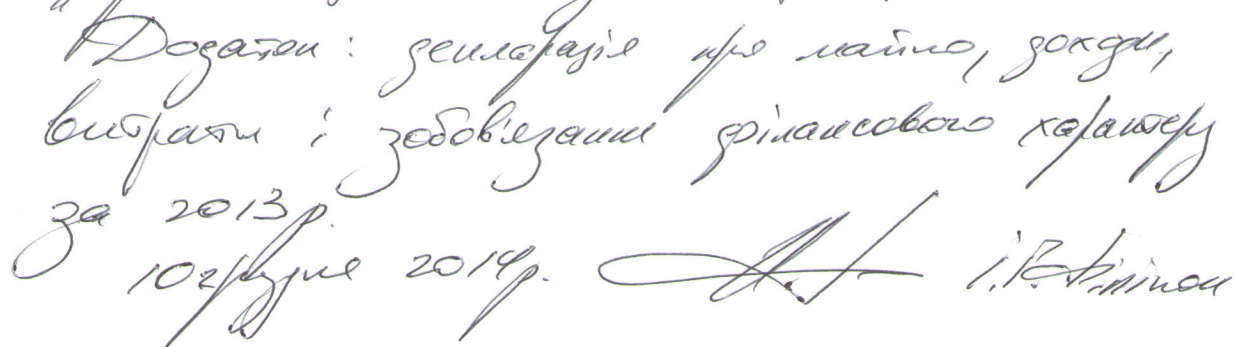 Додаток: декларація про майно, доходи,
витрати і зобов'язання фінансового характеру
за 2013р.
10 грудня 2014р.